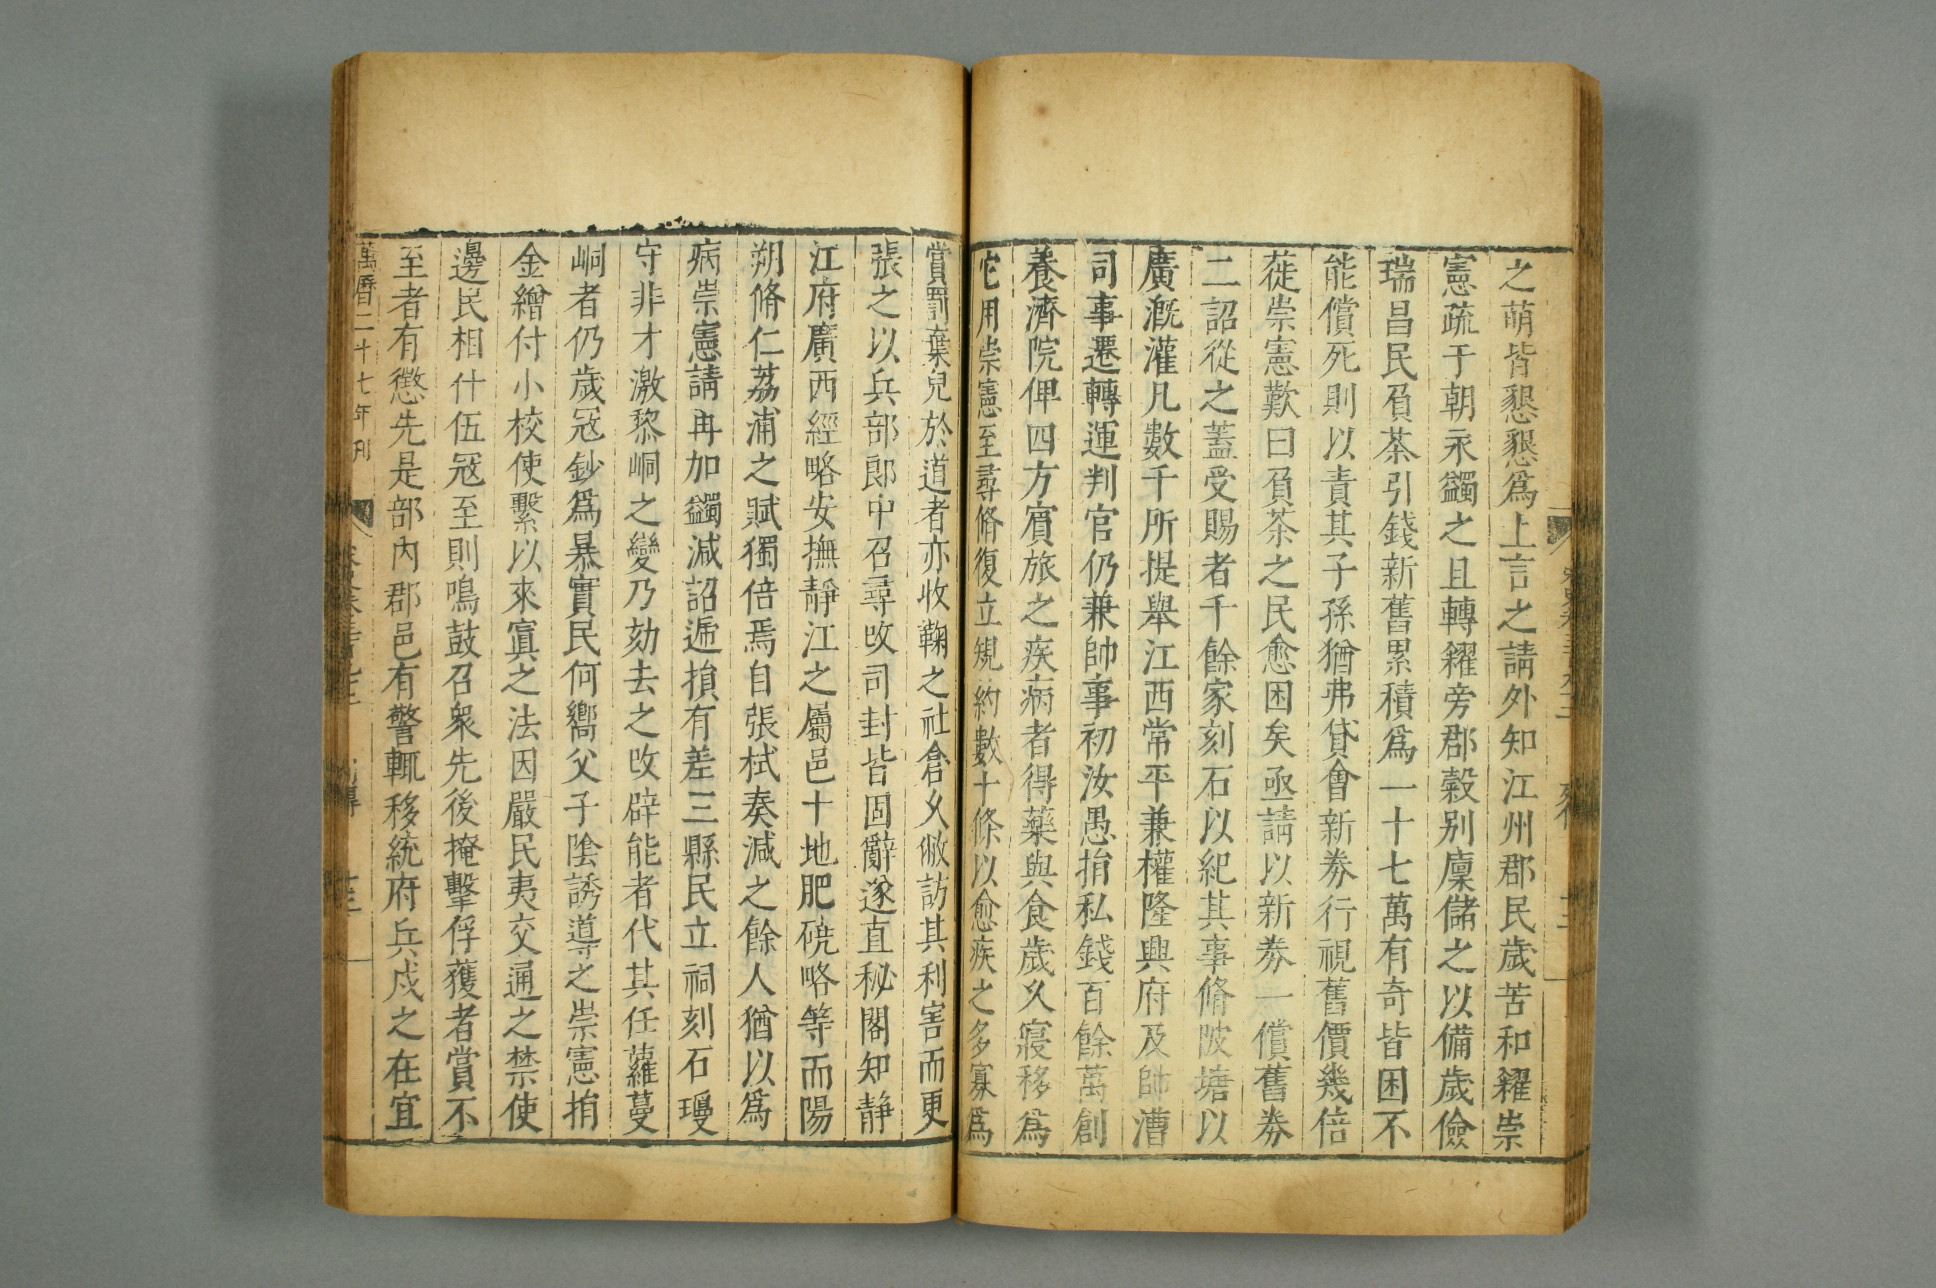 之萌皆懇懇爲上言之請外知江州郡民歲苦和糴崇
憲疏于朝永蠲之且轉糴旁郡穀别廩儲之以備歲儉
瑞昌民負茶引錢新舊累積爲一十七萬有奇皆困不
能償死則以責其子孫猶弗貸會新券行視舊價幾倍
蓰崇憲歎曰負茶之民愈困矣亟請以新券一償舊券
二詔從之蓋受賜者千餘家刻石以紀其事脩陂塘以
廣漑灌凡數千所提舉江西常平兼權隆興府及帥漕
司事遷轉運判官仍兼帥事初汝愚捐私錢百餘萬創
養濟院俾四方賔旅之疾病者得藥與食歲久寖移爲
它用崇憲至尋脩復立規約數十條以愈疾之多寡爲
賞罰棄兒於道者亦收鞠之社倉久敝訪其利害而更
張之以兵部郎中召尋改司封皆固辭遂直秘閣知静
江府廣西經略安撫靜江之屬邑十地肥磽略等而陽
朔脩仁荔浦之賦獨倍焉自張栻奏減之餘人猶以爲
病崇憲請再加蠲減詔遞損有差三縣民立祠刻石瓊
守非才激黎峒之變乃劾去之改辟能者代其任蘿蔓
峒者仍歲冦鈔爲暴實民何嚮父子陰誘導之崇憲捐
金繒付小校使繫以來寘之法因嚴民夷交通之禁使
邊民相什伍冦至則鳴鼓召衆先後掩擊俘獲者賞不
至者有懲先是部内郡邑有警輒移統府兵戍之在宜
萬曆二十七年刊